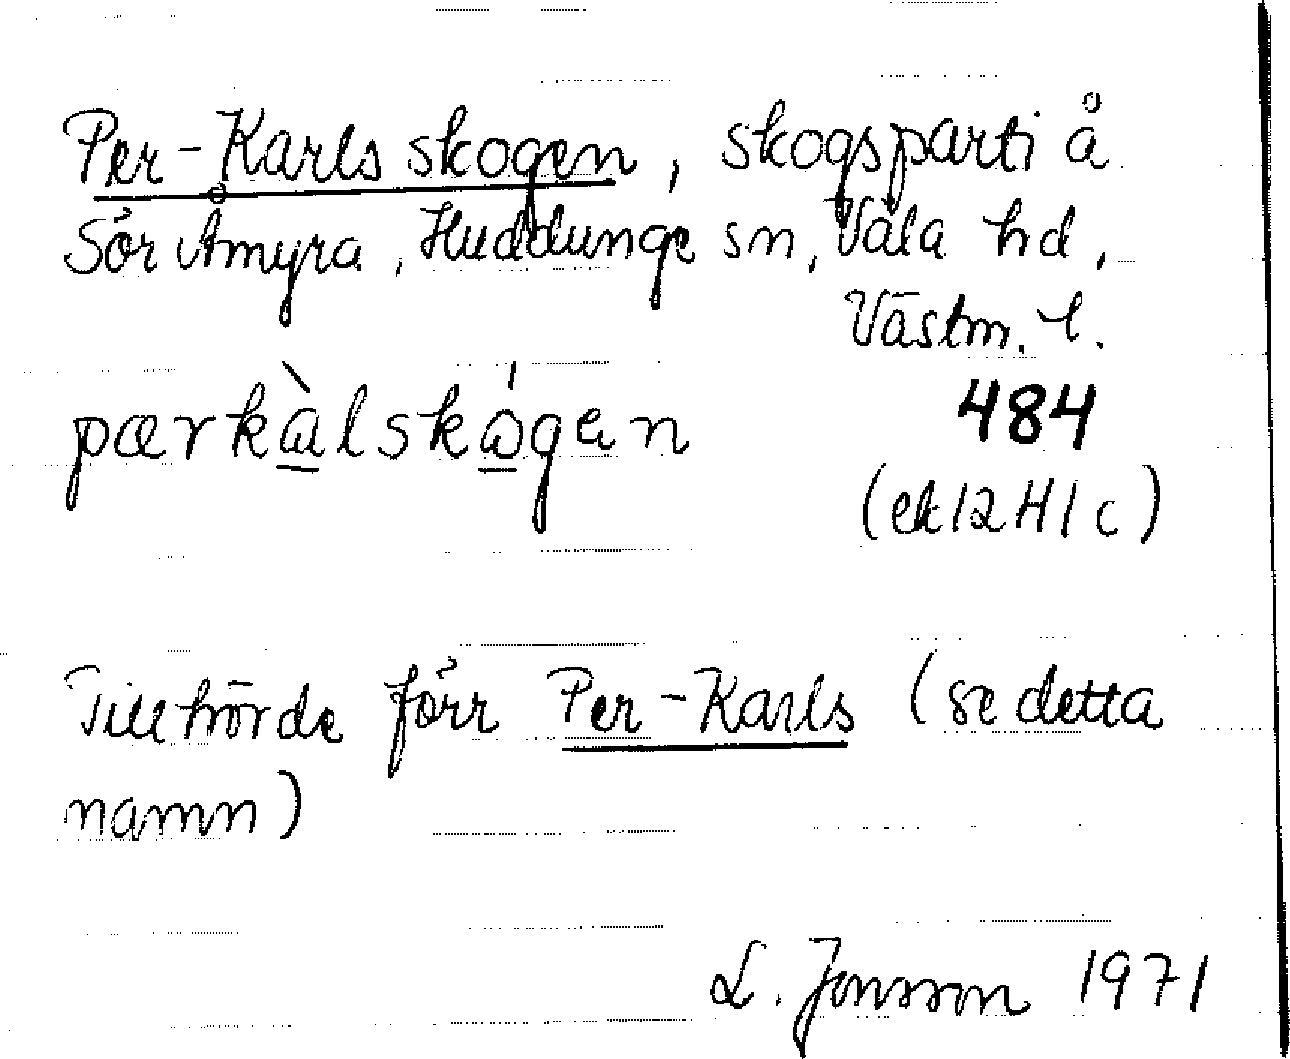 Per-Karlsskogen, skogsparti å
Sör Åmyra, Huddunge sn, Våla hd,
Västm. l.
pærkàlskógen 484
(ek 12 H 1 c)
Tillhörde förr Per-Karls (se detta
namn)
L. Jonsson 1971